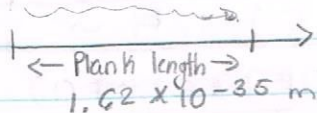 ← Plank length →
1.62 × 10-35 m